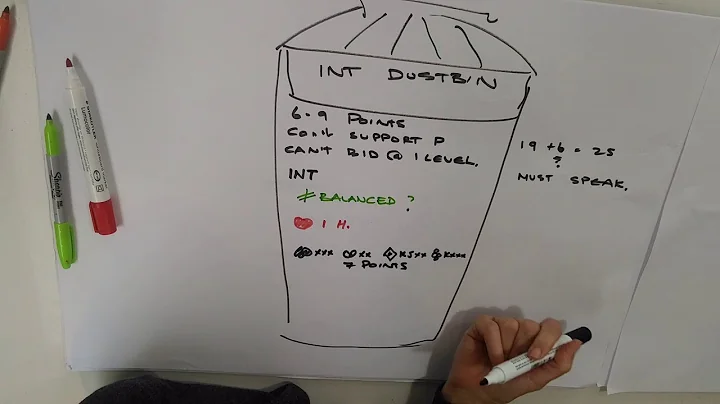 INT DUSTBIN
6-9 POINTS
CAN'T SUPPORT P
CAN'T BID @ 1 LEVEL.
INT
≠ BALANCED ?
♥ 1 H.
♠ xxx ♥ xx ♦ KJxx ♣ Kxxx
7 POINTS
19 + 6 = 25
?
MUST SPEAK.
Sharpie